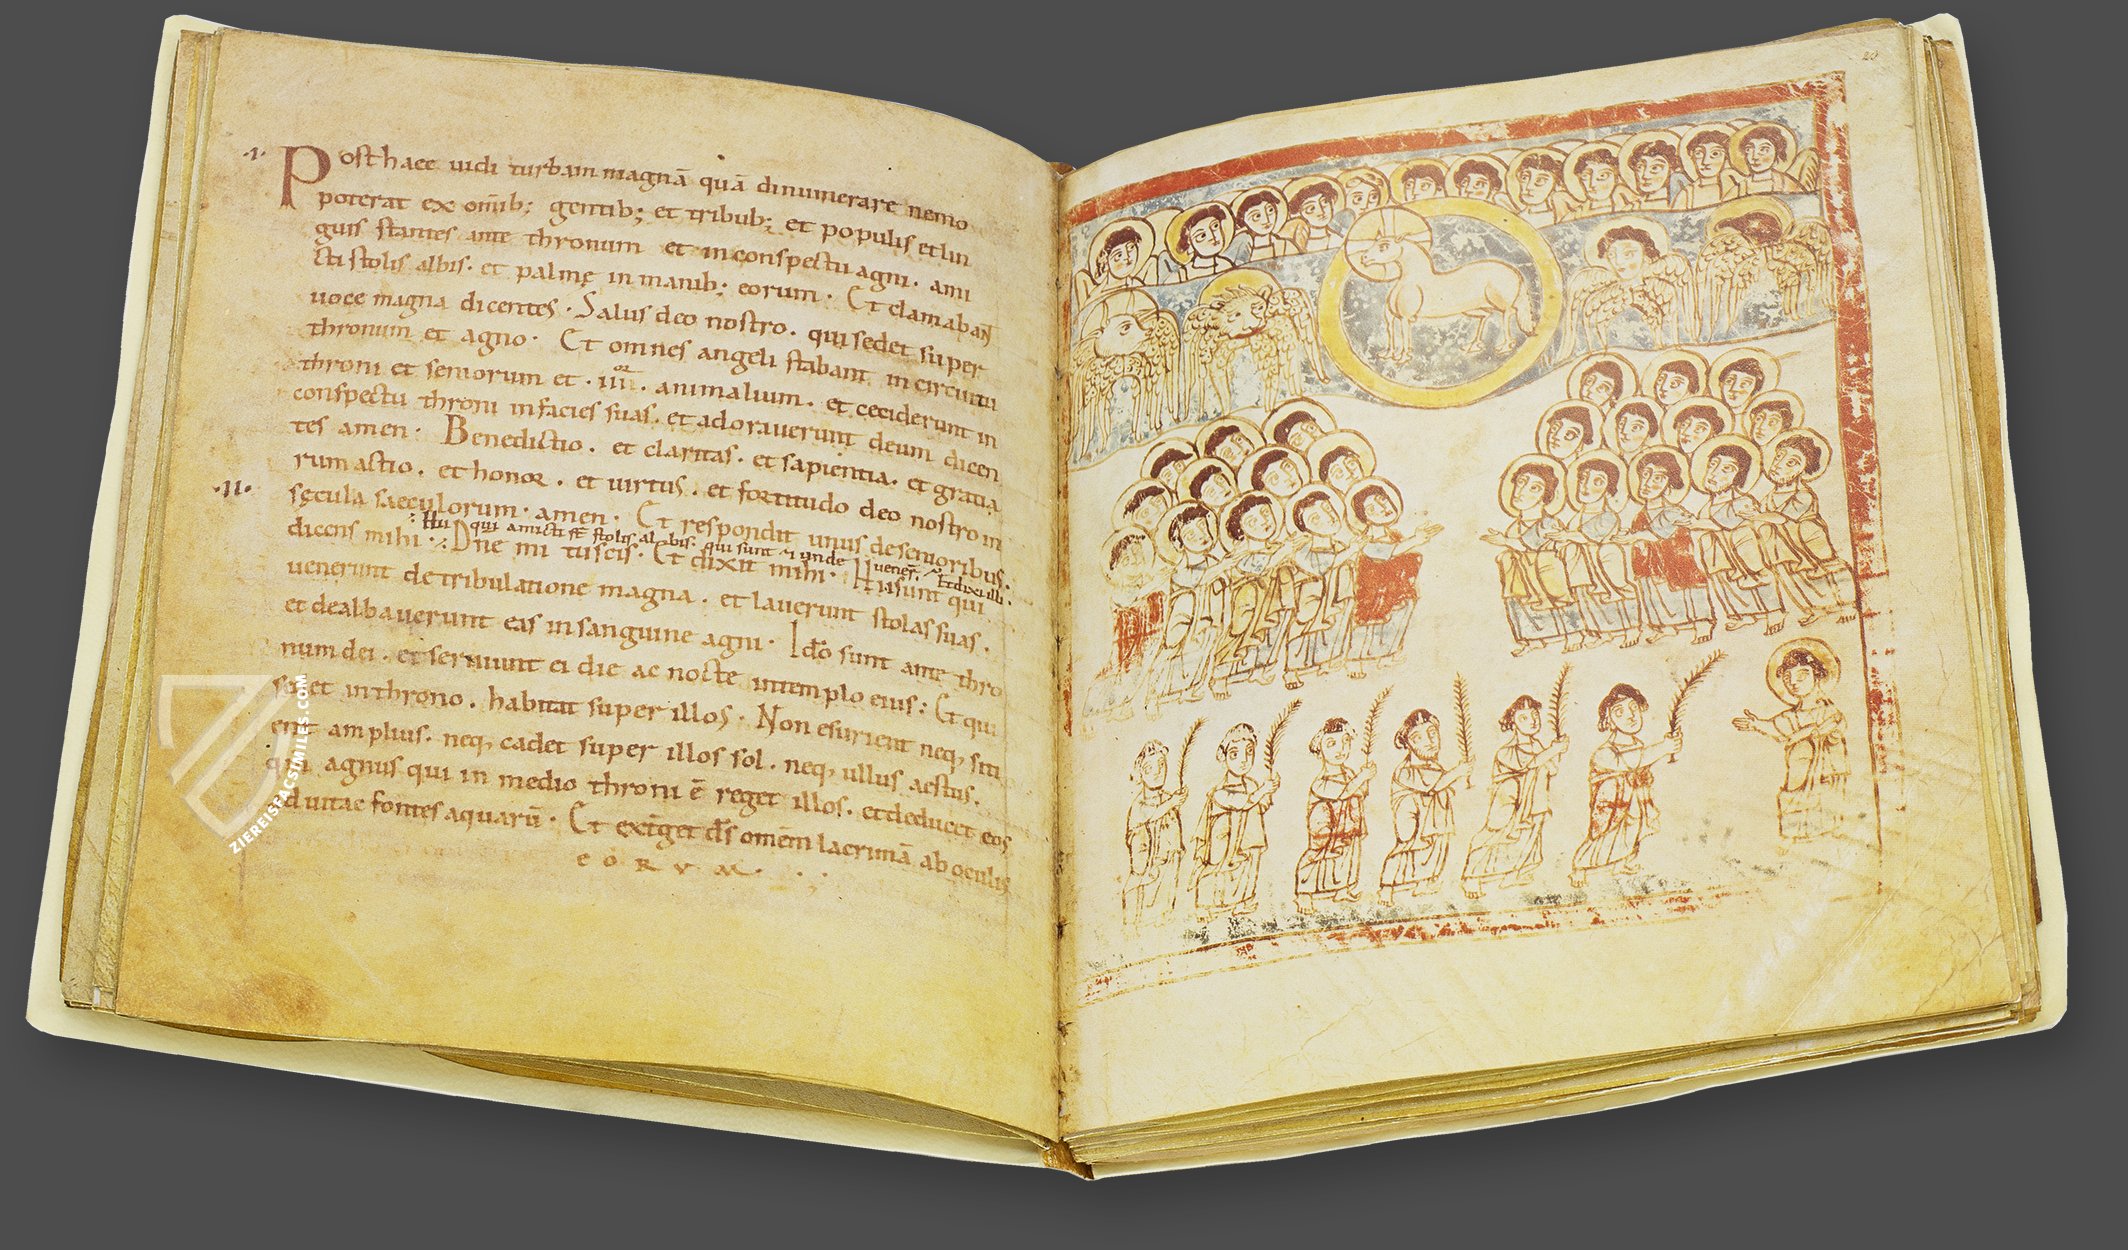 ·I· Post haec uidi turbam magnā quā dinumerare nemo
poterat ex omib; gentib; et tribub; et populis et lin
guis stantes ante thronum et in conspectu agni· ami
cti stolis albis· et palmę in manib; eorum· Et clamabant
uoce magna dicentes· Salus deo nostro· qui sedet super
thronum et agno· Et omnes angeli stabant in circuitu
throni et seniorum et ·iiii· animalium· et ceciderunt in
conspectu throni in facies suas· et adorauerunt deum dicen
tes amen· Benedictio· et claritas· et sapientia· et gratia
rum actio· et honor· et uirtus· et fortitudo deo nostro in
·II· sęcula saeculorum· amen· Et respondit unus de senioribus·
hii qui amicti st̄ stolis albis· qui sunt et unde uener̄· Et dixi illi·
dicens mihi· Dn̄e mi tu scis· Et dixit mihi· Hii sunt qui
uenerunt de tribulatione magna· et lauerunt stolas suas·
et dealbauerunt eas in sanguine agni· Ido sunt ante thro
num dei· et seruiunt ei die ac nocte in templo eius: Et qui
sedet in throno· habitat super illos· Non esurient neq, siti
ent amplius· neq, cadet super illos sol· neq, ullus aestus·
qm̄ agnus qui in medio throni ē reget illos· et deducet eos
ad uitae fontes aquarū· Et exterget ds̄ omēm lacrimā ab oculis
eORVM·
20
ZIEREISFACSIMILES.COM